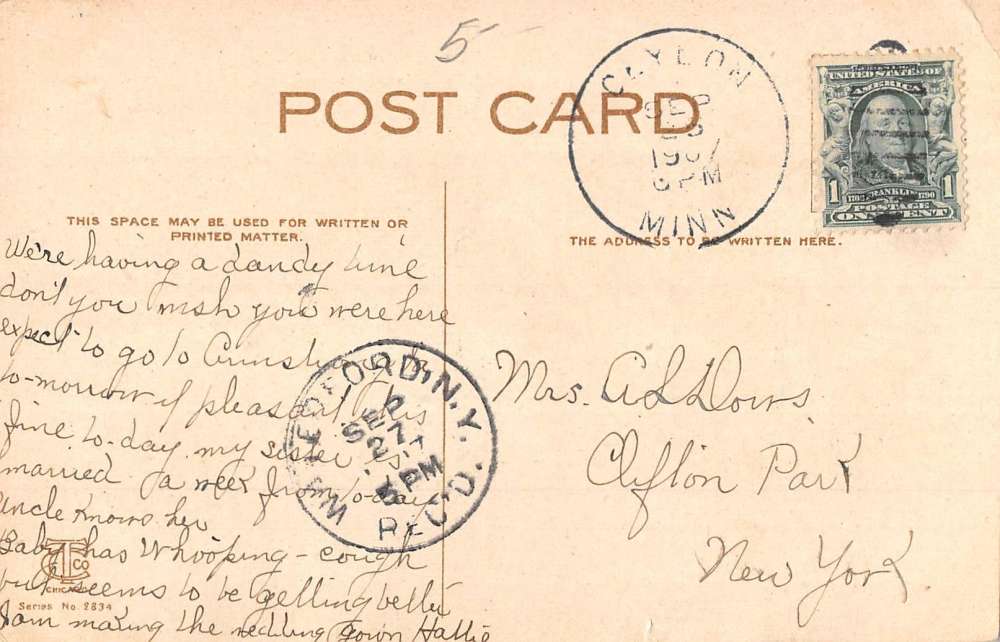 5
POST CARD
MINN
SEP
1907
6 PM
UNITED STATES OF
AMERICA
1 FRANKLIN 1790 1
POSTAGE
ONE CENT
THIS SPACE MAY BE USED FOR WRITTEN OR
PRINTED MATTER.
THE ADDRESS TO BE WRITTEN HERE.
We're having a dandy time
don't you wish you were here
expect to go to
to-morrow if pleasant this
fine to-day. my sister is
married a week from to-day
Uncle knows her
Baby has Whooping-cough
but seems to be getting better
I am making the wedding gown Hattie
W. MEDFORD, N.Y.
SEP
27
PM
REC'D.
Mrs. A L Dows
Clifton Park
New York
TC CO
CHICAGO
Series No. 2834